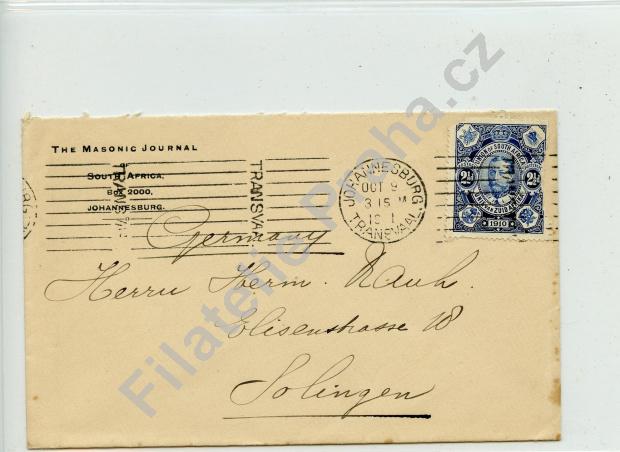 THE MASONIC JOURNAL
SOUTH AFRICA,
BOX 2000,
JOHANNESBURG.
TRANSVAAL
JOHANNESBURG
OCT 9
3 15 M
19 1
TRANSVAAL
UNION OF SOUTH AFRICA
2½ 2½
1910
Germany
Herrn Herm. Rauh.
Elisenstrasse 18
Solingen
Filatelie Praha.cz